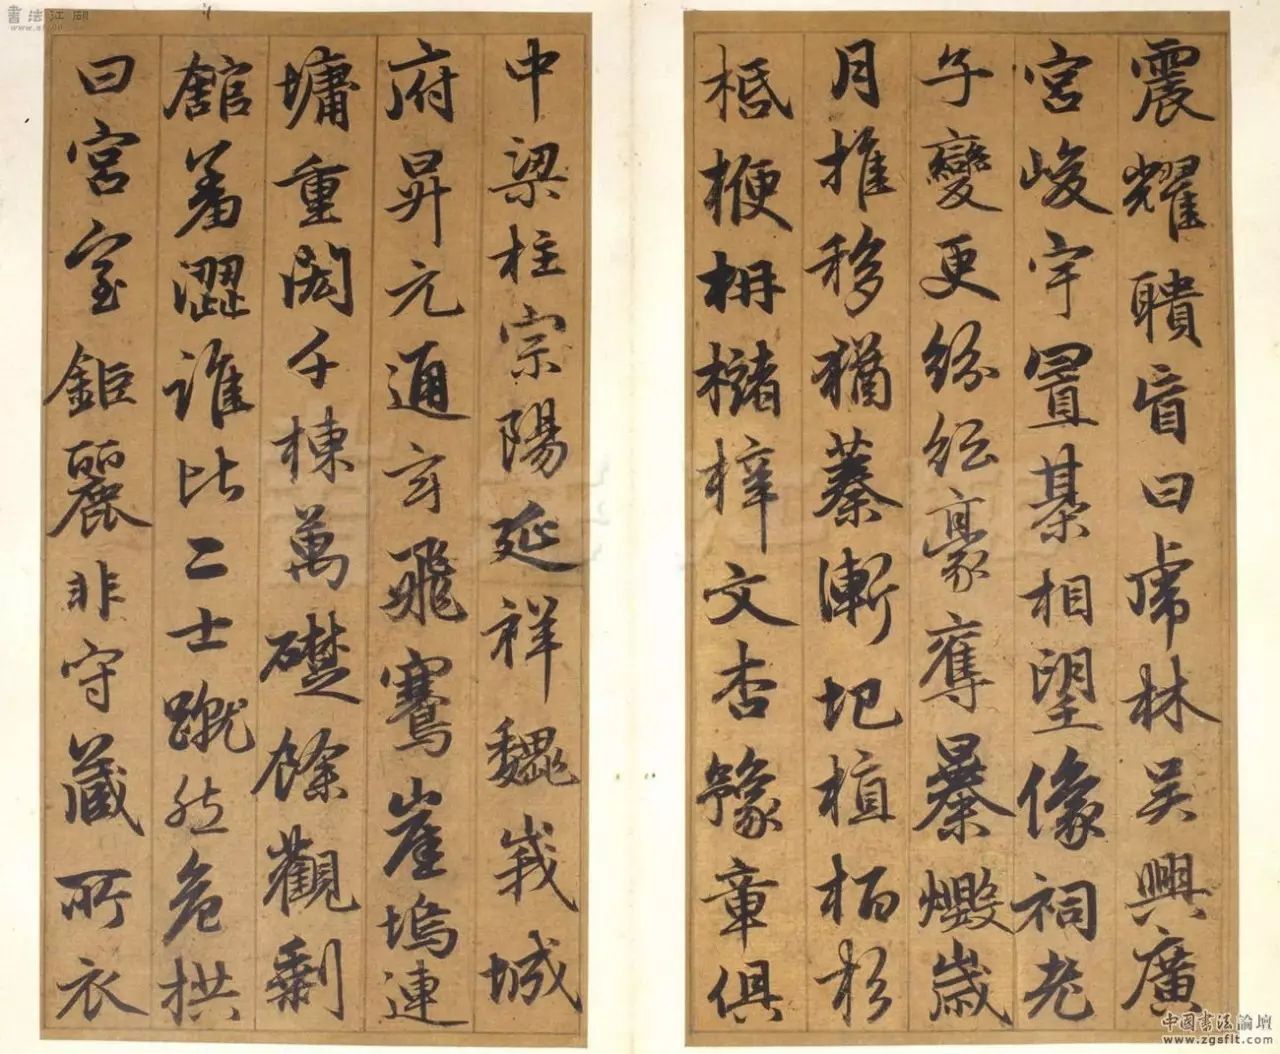 震耀聵盲曰虖林吴興廣
宫峻宇置棊相望像祠老
子變更紛紜豪奪暴燬歲
月推移猶蓁漸圯植栢杉
柢楩枏櫧梓文杏豫章俱
中梁柱宗陽延祥魏峩城
府昇元通玄飛騫崖塢連
墉重闳千棟萬礎餘觀剩
舘羞澀誰比二士蹴然危拱
曰宫室鉅麗非守藏所衣
書法江湖
中国书法論壇
www.zgsflt.com